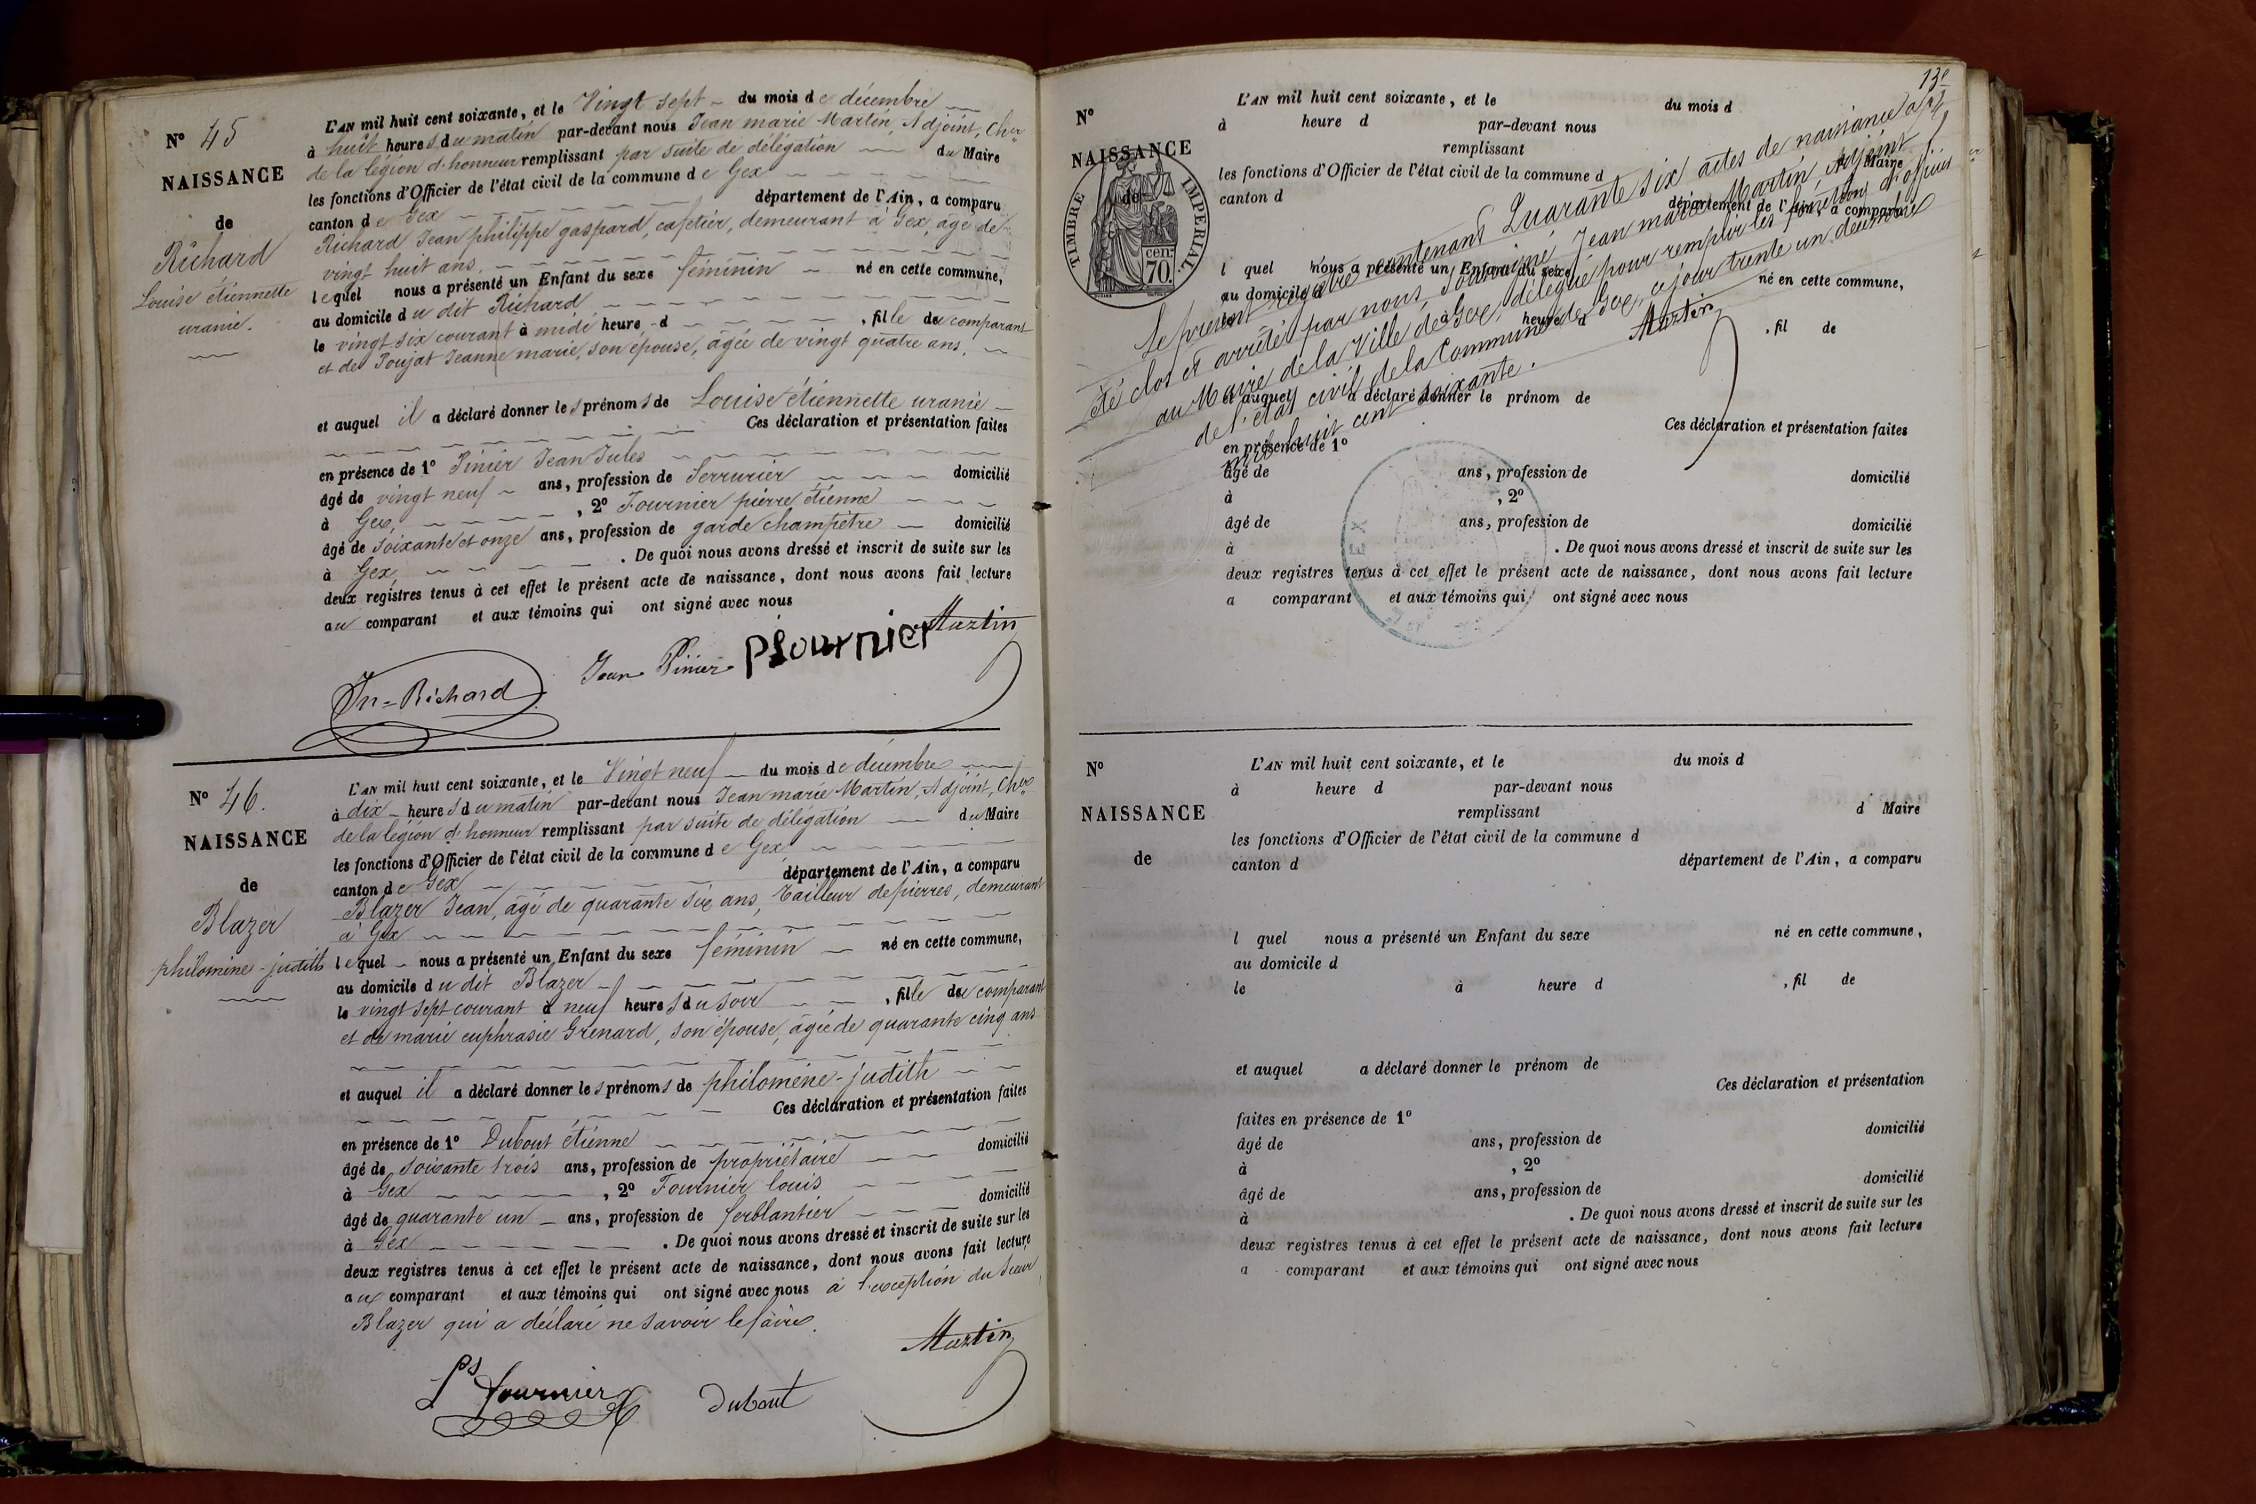 N° 45
NAISSANCE
de
Richard
Louise étiennette
uranie.
L'AN mil huit cent soixante, et le Vingt sept du mois de décembre
à huit heures du matin par-devant nous Jean marie Martin, Adjoint, Cher
de la légion d'honneur remplissant par suite de délégation du Maire
les fonctions d'Officier de l'état civil de la commune de Gex
canton de Gex département de l'Ain, a comparu
Richard Jean philippe gaspard, cafetier, demeurant à Gex, âgé de
vingt huit ans,
lequel nous a présenté un Enfant du sexe féminin né en cette commune,
au domicile du dit Richard
le vingt six courant à midi heure d , fille du comparant
et de Poujat Jeanne marie, son épouse, âgée de vingt quatre ans,
et auquel il a déclaré donner les prénoms de Louise étiennette uranie
Ces déclaration et présentation faites
en présence de 1° Pinier Jean Jules
âgé de vingt neuf ans, profession de Serrurier domicilié
à Gex, , 2° Fournier pierre étienne
âgé de soixante et onze ans, profession de garde champêtre domicilié
à Gex . De quoi nous avons dressé et inscrit de suite sur les
deux registres tenus à cet effet le présent acte de naissance, dont nous avons fait lecture
au comparant et aux témoins qui ont signé avec nous
Martin
Jn = Richard Jean Pinier Pfournier
N° 46.
NAISSANCE
de
Blazer
philomine-judith
L'AN mil huit cent soixante, et le Vingt neuf du mois de décembre
à dix heures du matin par-devant nous Jean marie Martin, Adjoint, Cher
de la légion d'honneur remplissant par suite de délégation du Maire
les fonctions d'Officier de l'état civil de la commune de Gex
canton de Gex département de l'Ain, a comparu
Blazer Jean, âgé de quarante six ans, tailleur de pierres, demeurant
à Gex
lequel nous a présenté un Enfant du sexe féminin né en cette commune,
au domicile du dit Blazer
le vingt sept courant à neuf heures du soir , fille du comparant
et de marie euphrasie Grenard, son épouse, âgée de quarante cinq ans
et auquel il a déclaré donner les prénoms de philoméne-judith
Ces déclaration et présentation faites
en présence de 1° Dubout étienne
âgé de soixante trois ans, profession de propriétaire domicilié
à Gex , 2° Fournier louis
âgé de quarante un ans, profession de ferblantier domicilié
à Gex . De quoi nous avons dressé et inscrit de suite sur les
deux registres tenus à cet effet le présent acte de naissance, dont nous avons fait lecture
aux comparant et aux témoins qui ont signé avec nous à l'exception du Sieur
Blazer qui a déclaré ne savoir le faire.
Martin
Ls fournier Dubout
N°
NAISSANCE
de
TIMBRE IMPERIAL.
70 cen.
L'AN mil huit cent soixante, et le du mois d
à heure d par-devant nous
remplissant d Maire
les fonctions d'Officier de l'état civil de la commune d
canton d département de l'Ain, a comparu
l quel nous a présenté un Enfant du sexe né en cette commune,
au domicile d
le à heure d , fil de
et auquel a déclaré donner le prénom de
Ces déclaration et présentation faites
en présence de 1°
âgé de ans, profession de domicilié
à , 2°
âgé de ans, profession de domicilié
à . De quoi nous avons dressé et inscrit de suite sur les
deux registres tenus à cet effet le présent acte de naissance, dont nous avons fait lecture
a comparant et aux témoins qui ont signé avec nous
Le présent registre contenant Quarante six actes de naissance a
été clos et arrêté par nous, soussigné, Jean marie Martin, Adjoint
au Maire de la Ville de Gex, délégué pour remplir les fonctions d'officier
de l'état civil de la Commune de Gex, ce jour trente un décembre
mil huit cent soixante.
Martin
GEX
N°
NAISSANCE
de
L'AN mil huit cent soixante, et le du mois d
à heure d par-devant nous
remplissant d Maire
les fonctions d'Officier de l'état civil de la commune d
canton d département de l'Ain, a comparu
l quel nous a présenté un Enfant du sexe né en cette commune,
au domicile d
le à heure d , fil de
et auquel a déclaré donner le prénom de
Ces déclaration et présentation
faites en présence de 1°
âgé de ans, profession de domicilié
à , 2°
âgé de ans, profession de domicilié
à . De quoi nous avons dressé et inscrit de suite sur les
deux registres tenus à cet effet le présent acte de naissance, dont nous avons fait lecture
a comparant et aux témoins qui ont signé avec nous